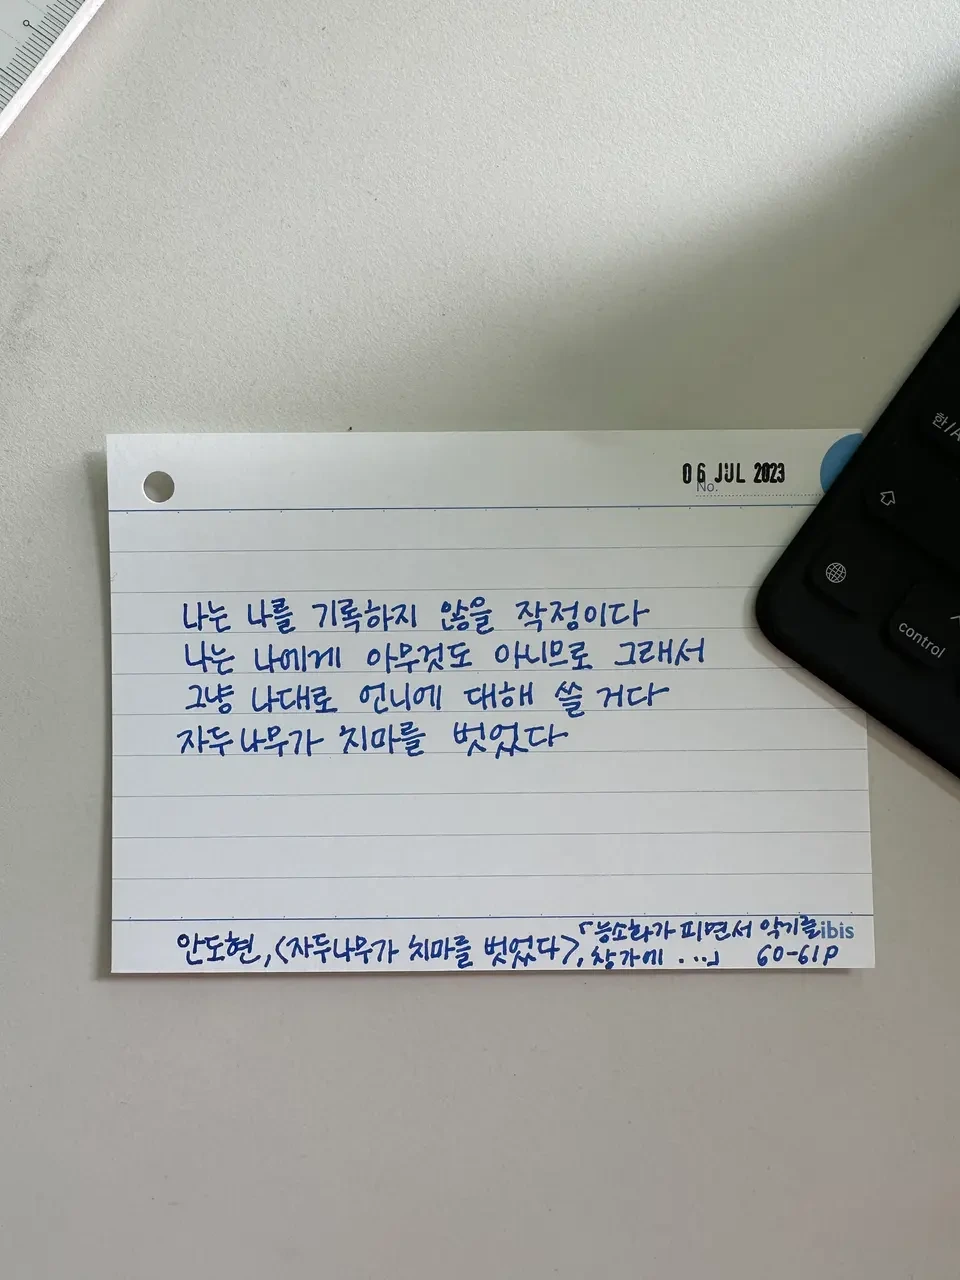 06 JUL 2023
No.
한/A
control
나는 나를 기록하지 않을 작정이다
나는 나에게 아무것도 아니므로 그래서
그냥 나대로 언니에 대해 쓸 거다
자두나무가 치마를 벗었다
안도현, <자두나무가 치마를 벗었다>, 「능소화가 피면서 악기를
창가에 ...」 60-61P
ibis